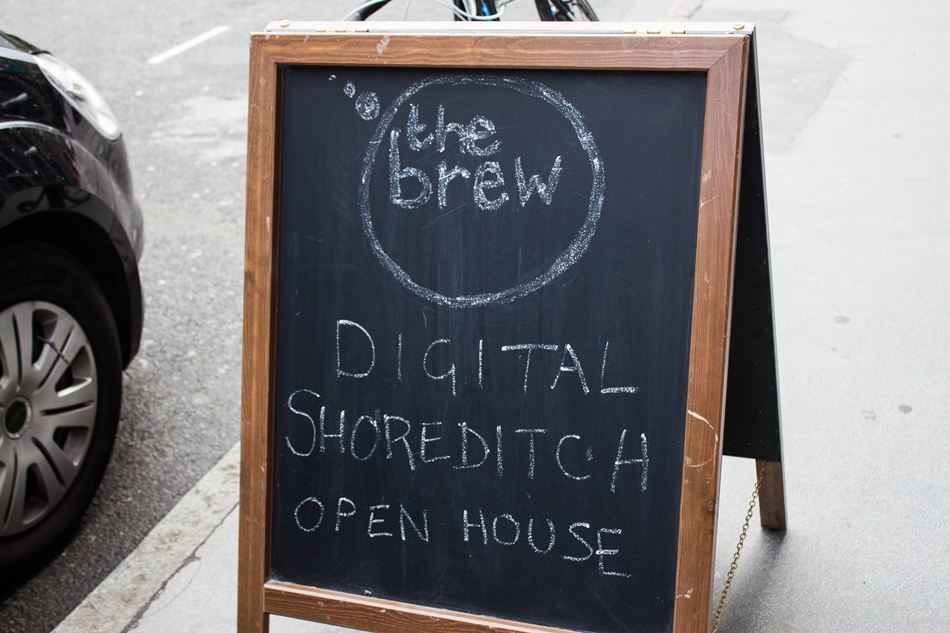 the
brew
DIGITAL
SHOREDITCH
OPEN HOUSE